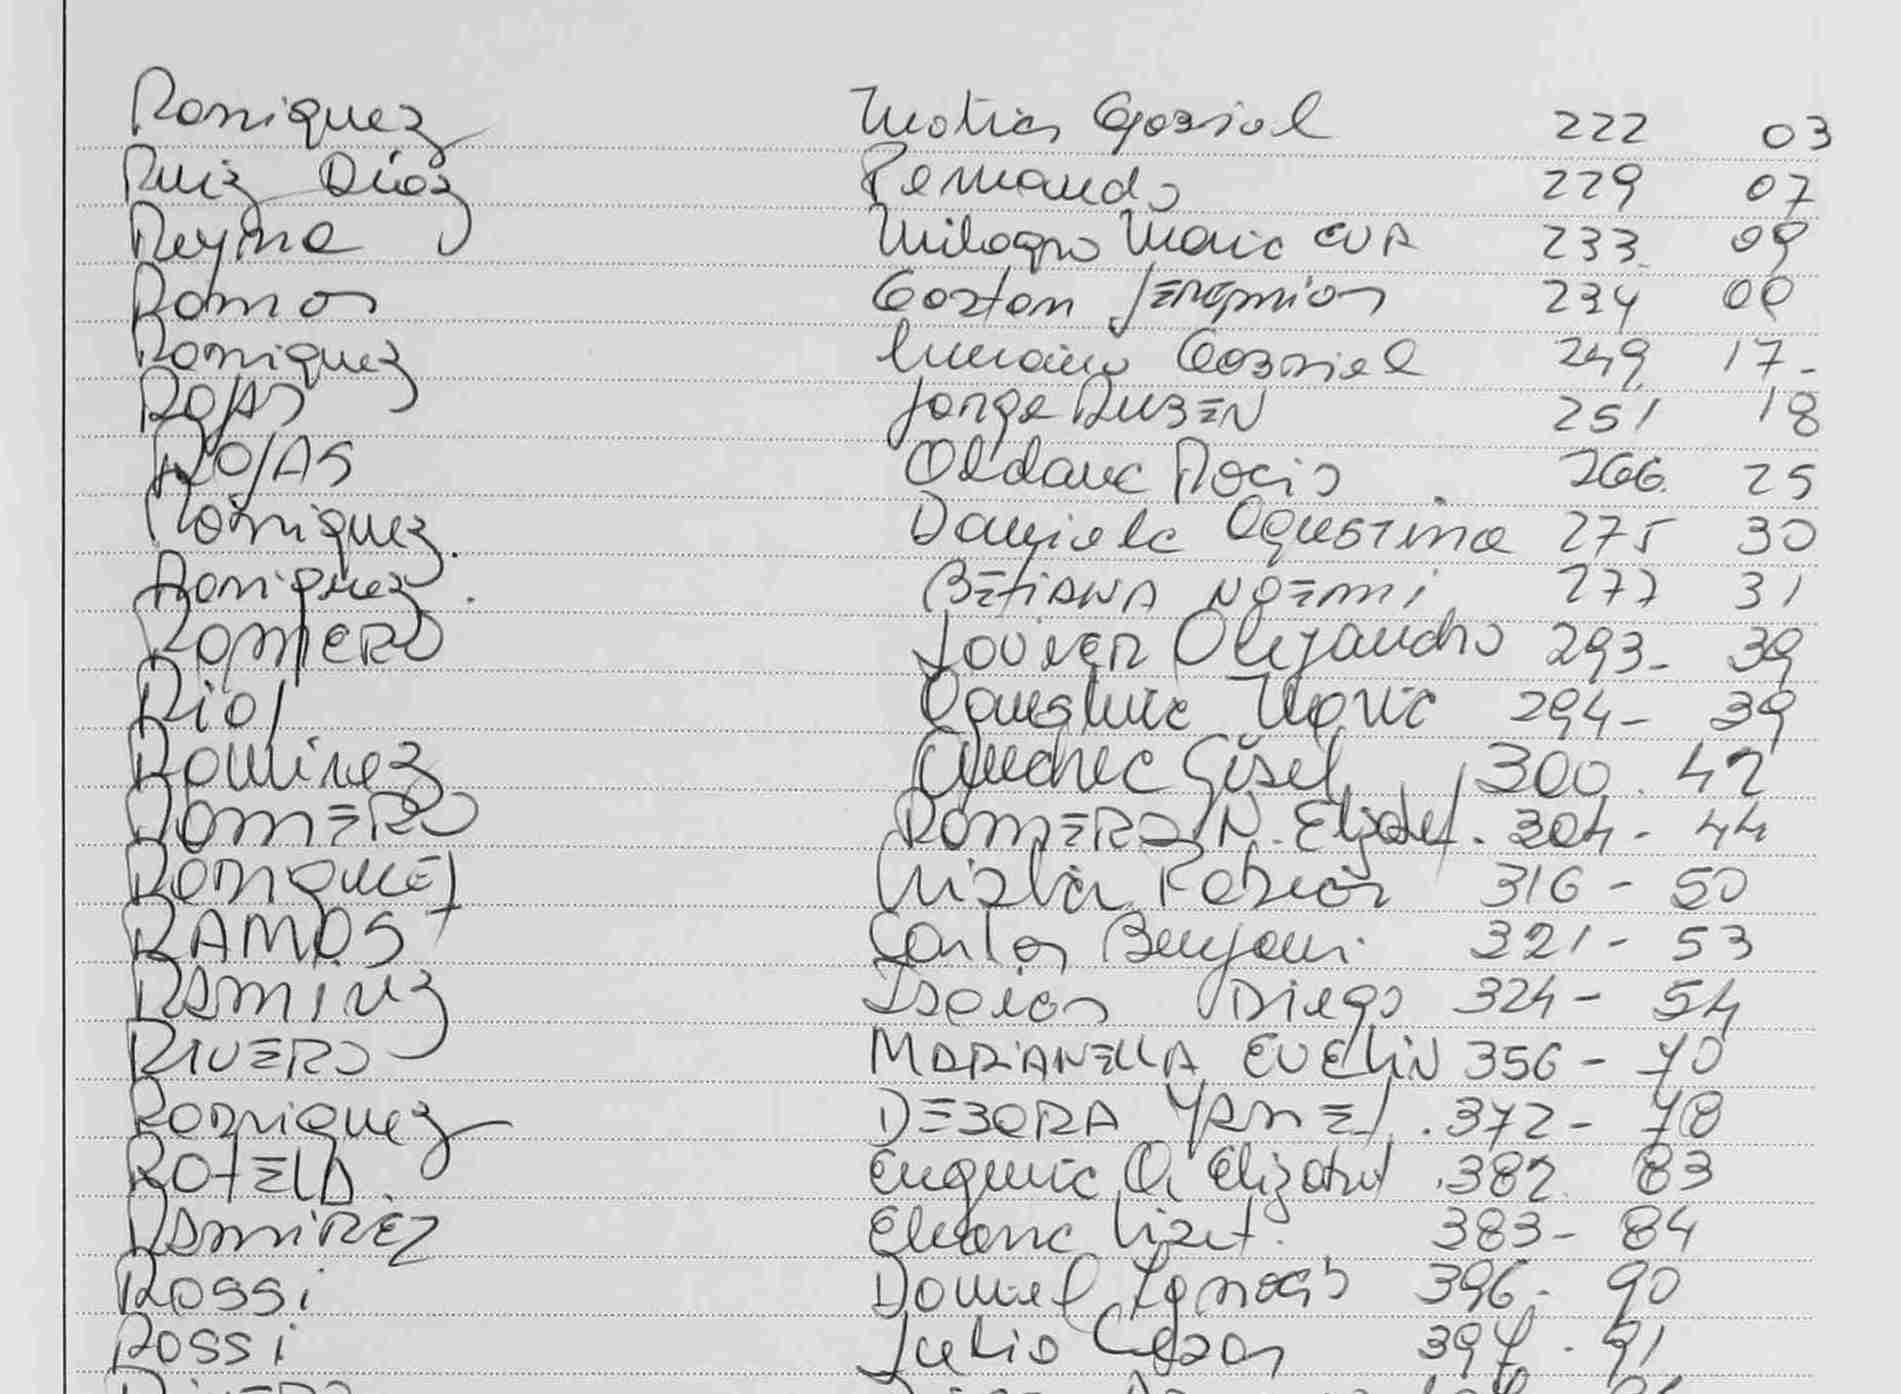 Rodriguez Matias Gabriel 222 03
Ruiz Diaz Fernando 229 07
Reyna Milagro Maria EVA 233 09
Ramos Gaston Jeremias 234 09
Rodriguez Luciano Gabriel 249 17-
ROJAS Jorge RUBEN 251 18
ROJAS Aldana Rocio 266. 25
Rodriguez. Daniela Agustina 275 30
Rodriguez. BETIANA NOEMI 277 31
ROMERO Javier Alejandro 293- 39
Rios Maria 294- 39
Ramirez Andrea Gisel 300. 42
ROMERO ROMERO N. Elizabet. 304- 44
RODRIGUEZ Cristian Fabian 316- 50
RAMOS Carlos Benjami. 321- 53
RAMIREZ Isaias Diego 324- 54
RIVERO MARIANELLA EVELIN 356- 70
Rodriguez DEBORA YANET. 372- 78
ROTELA. Eugenia A. Elizabet. 382. 83
RAMIREZ Eleonor Lizet. 383- 84
ROSSI Daniel Ignacio 396- 90
ROSSI Julio Cesar 397. 91